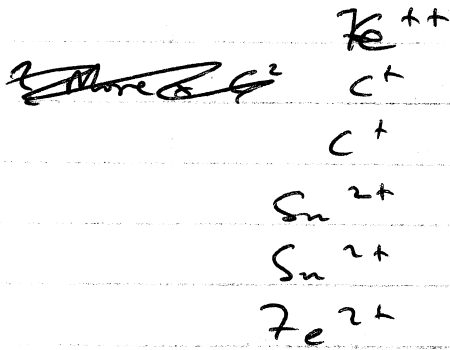 Fe ++
C+
C+
Sn 2+
Sn 2+
Fe 2+